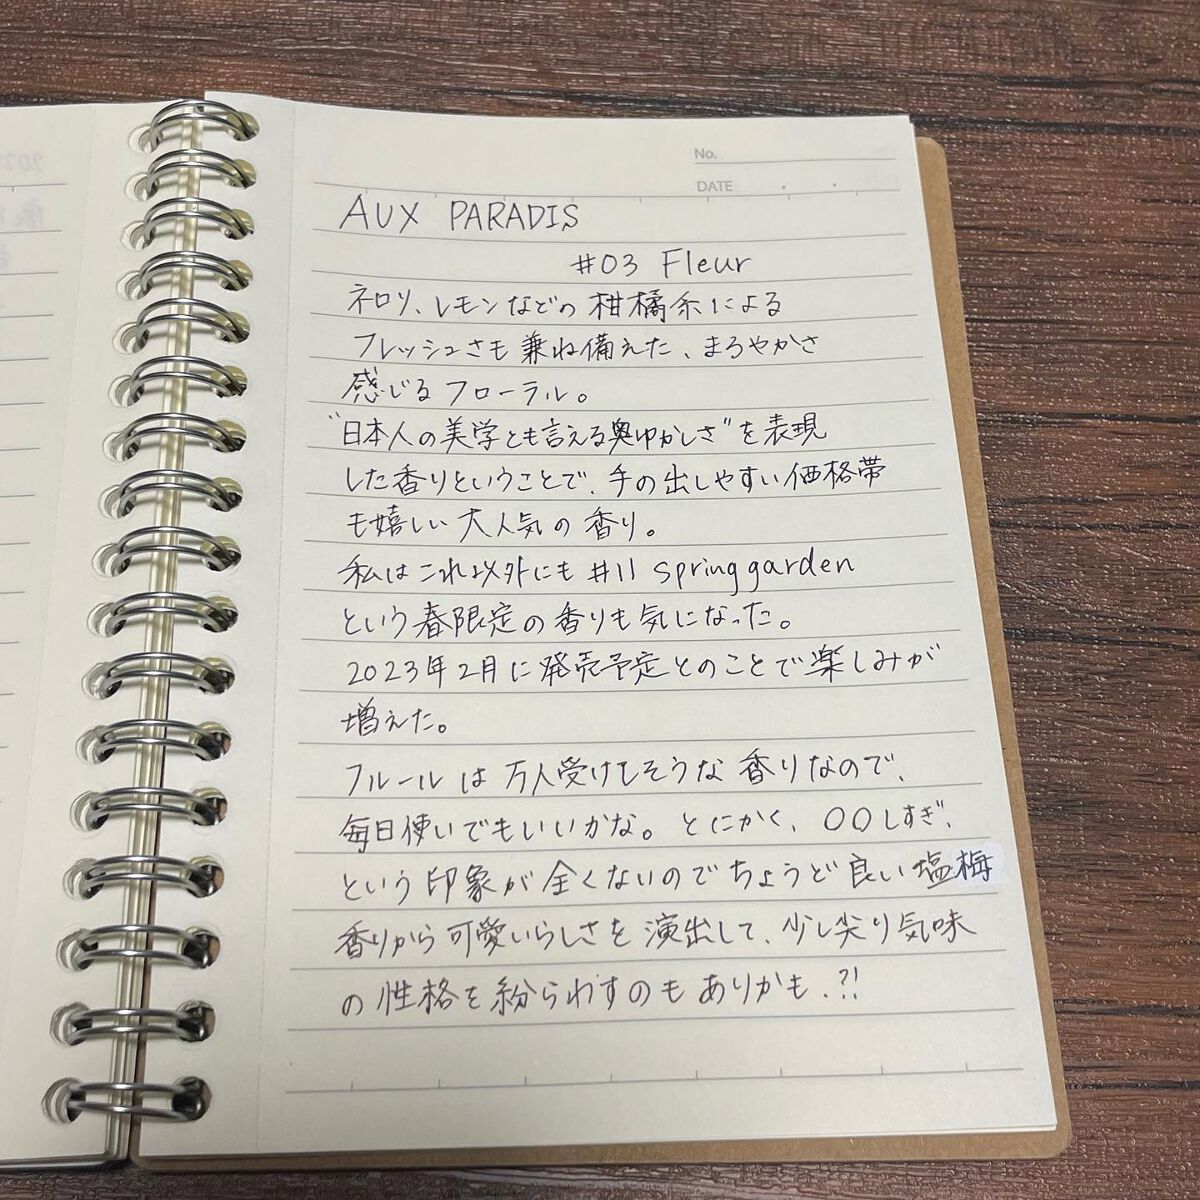 No.
DATE
AUX PARADIS
#03 Fleur
ネロリ、レモンなどの柑橘系による
フレッシュさも兼ね備えた、まろやかさ
感じるフローラル。
"日本人の美学とも言える奥ゆかしさ"を表現
した香りということで、手の出しやすい価格帯
も嬉しい大人気の香り。
私はこれ以外にも #11 spring garden
という春限定の香りも気になった。
2023年2月に発売予定とのことで楽しみが
増えた。
フルールは万人受けしそうな香りなので、
毎日使いでもいいかな。とにかく、〇〇しすぎ、
という印象が全くないのでちょうど良い塩梅
香りから可愛いらしさを演出して、少し尖り気味
の性格を紛らわすのもありかも.?!